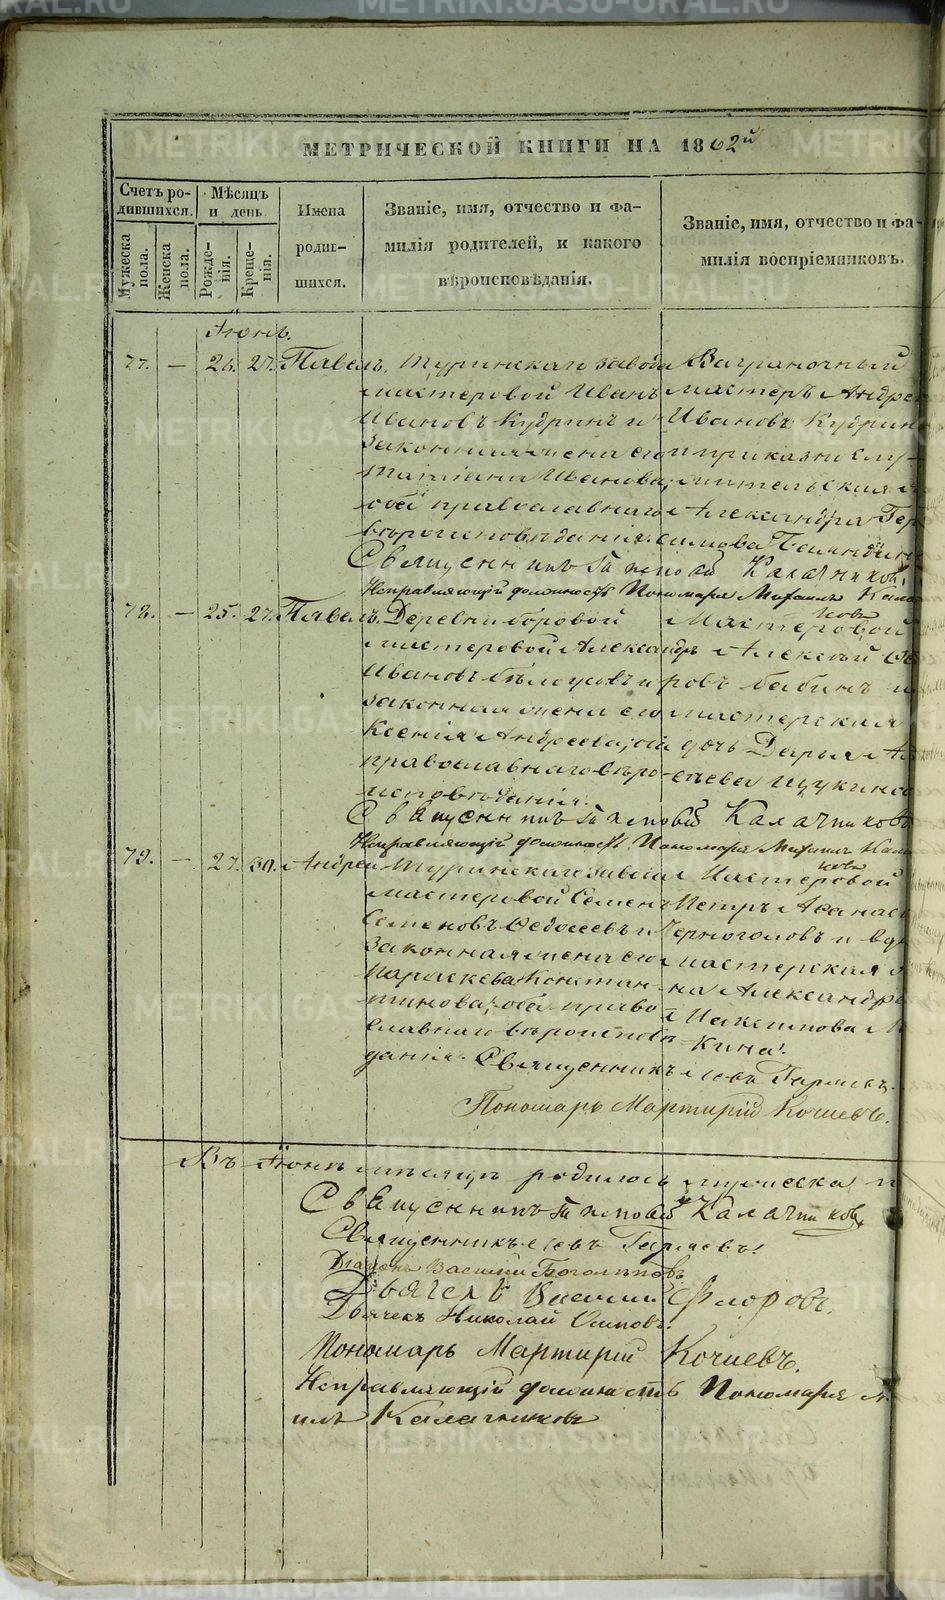 МЕТРИЧЕСКОЙ КНИГИ НА 1862й
Счетъ ро-
дившихся.
Мѣсяцъ
и день.
Мужеска
пола.
Женска
пола.
Рожде-
нія.
Креще-
нія.
Имена
родив-
шихся.
Званіе, имя, отчество и фа-
милія родителей, и какого
вѣроисповѣданія.
Званіе, имя, отчество и фа-
милія воспріемниковъ.
Іюнь.
77. — 26. 27. Павелъ.
Туринскаго завода
мастеровой Иванъ
Ивановъ Кудринъ и
законная жена его
Татіана Иванова;
оба православнаго
вѣроисповѣданія.
мастеръ Андре
Ивановъ Кудринъ
и приказно слу-
жительская
Александра Гер
асимова
Священникъ Калачниковъ
Исправляющій должность Пономаря Михаилъ Кала
чниковъ
78. — 25. 27. Павелъ.
Деревни боровой
мастеровой Александръ
Ивановъ Бѣлоусовъ и
законная жена его
Ксенія Андреева; оба
православнаго вѣро-
исповѣданія.
Мастеровой
Алексѣй
ровъ Бабинъ и
мастерская
дочь Дарья
Щукина
Священникъ Калачниковъ
Исправляющій должность Пономаря Михаилъ Кала
чниковъ
79. — 27. 30. Андрей
Туринскаго завода
мастеровой Семенъ
Семеновъ Ѳедосеевъ и
законная жена его
Параскева Констан-
тинова; оба право-
славнаго вѣроисповѣ-
данія.
Мастеровой
Петръ Аѳанась
Черноголовъ и вдо
мастерская
на Александра
Максимова
кина.
Священникъ Іовъ Гаряевъ.
Пономарь Мартирій Кочневъ.
Въ Іюнѣ мѣсяцѣ родилось мужеска п
Священникъ Калачниковъ
Священникъ Іовъ Гаряевъ.
Діаконъ Василій Боголѣповъ
Дьячекъ Василий Флоровъ.
Дьячекъ Николай Осиповъ.
Пономарь Мартирій Кочневъ.
Исправляющій должность Пономаря М
илъ Калачниковъ
METRIKI.GASO-URAL.RU